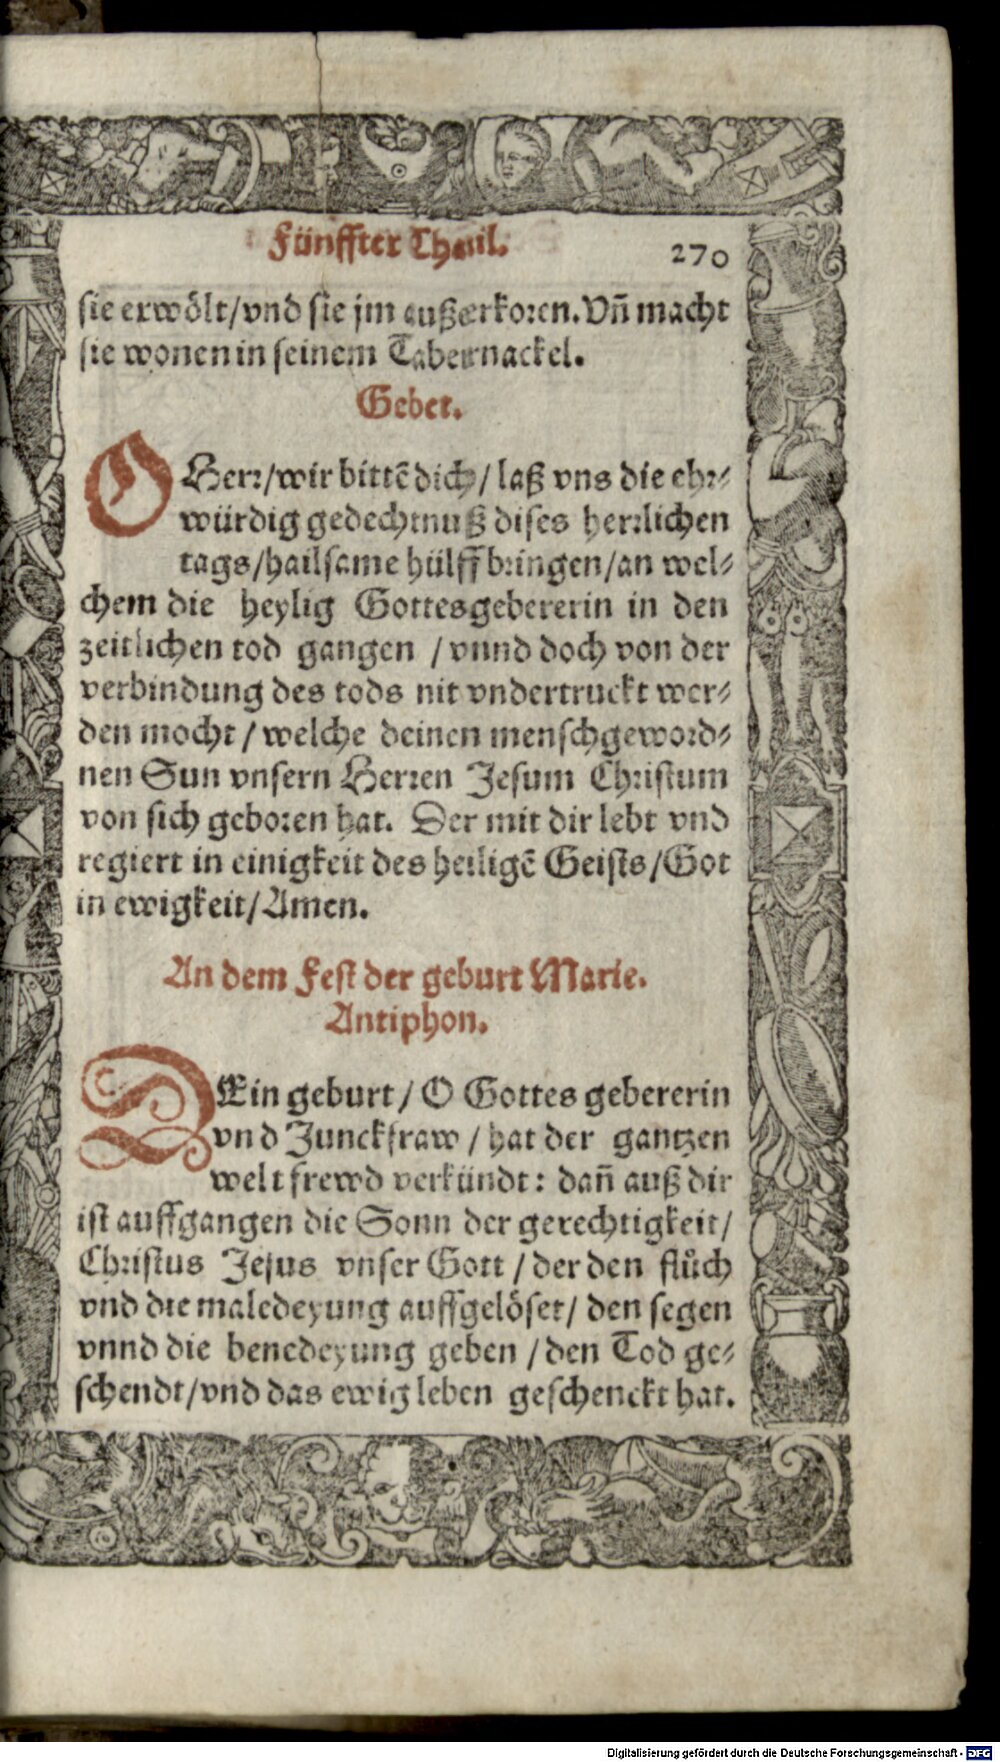 Fünffter Thail.
270
sie erwölt/vnd sie jm außerkoren. Vñ macht
sie wonen in seinem Tabernackel.
Gebet.
O Herr/wir bittē dich/ laß vns die ehr⸗
würdig gedechtnuß dises herrlichen
tags/hailsame hülff bringen/an wel⸗
chem die heylig Gottesgebererin in den
zeitlichen tod gangen / vnnd doch von der
verbindung des tods nit vndertruckt wer⸗
den mocht / welche deinen menschgeword⸗
nen Sun vnsern Herren Jesum Christum
von sich geboren hat. Der mit dir lebt vnd
regiert in einigkeit des heiligē Geists/Got
in ewigkeit/Amen.
An dem Fest der geburt Marie.
Antiphon.
DEin geburt/ O Gottes gebererin
vnd Junckfraw / hat der gantzen
welt frewd verkündt: dañ auß dir
ist auffgangen die Sonn der gerechtigkeit/
Christus Jesus vnser Gott / der den flůch
vnd die maledeyung auffgelöset/ den segen
vnnd die benedeyung geben / den Tod ge⸗
schendt/vnd das ewig leben geschenckt hat.
Digitalisierung gefördert durch die Deutsche Forschungsgemeinschaft - DFG